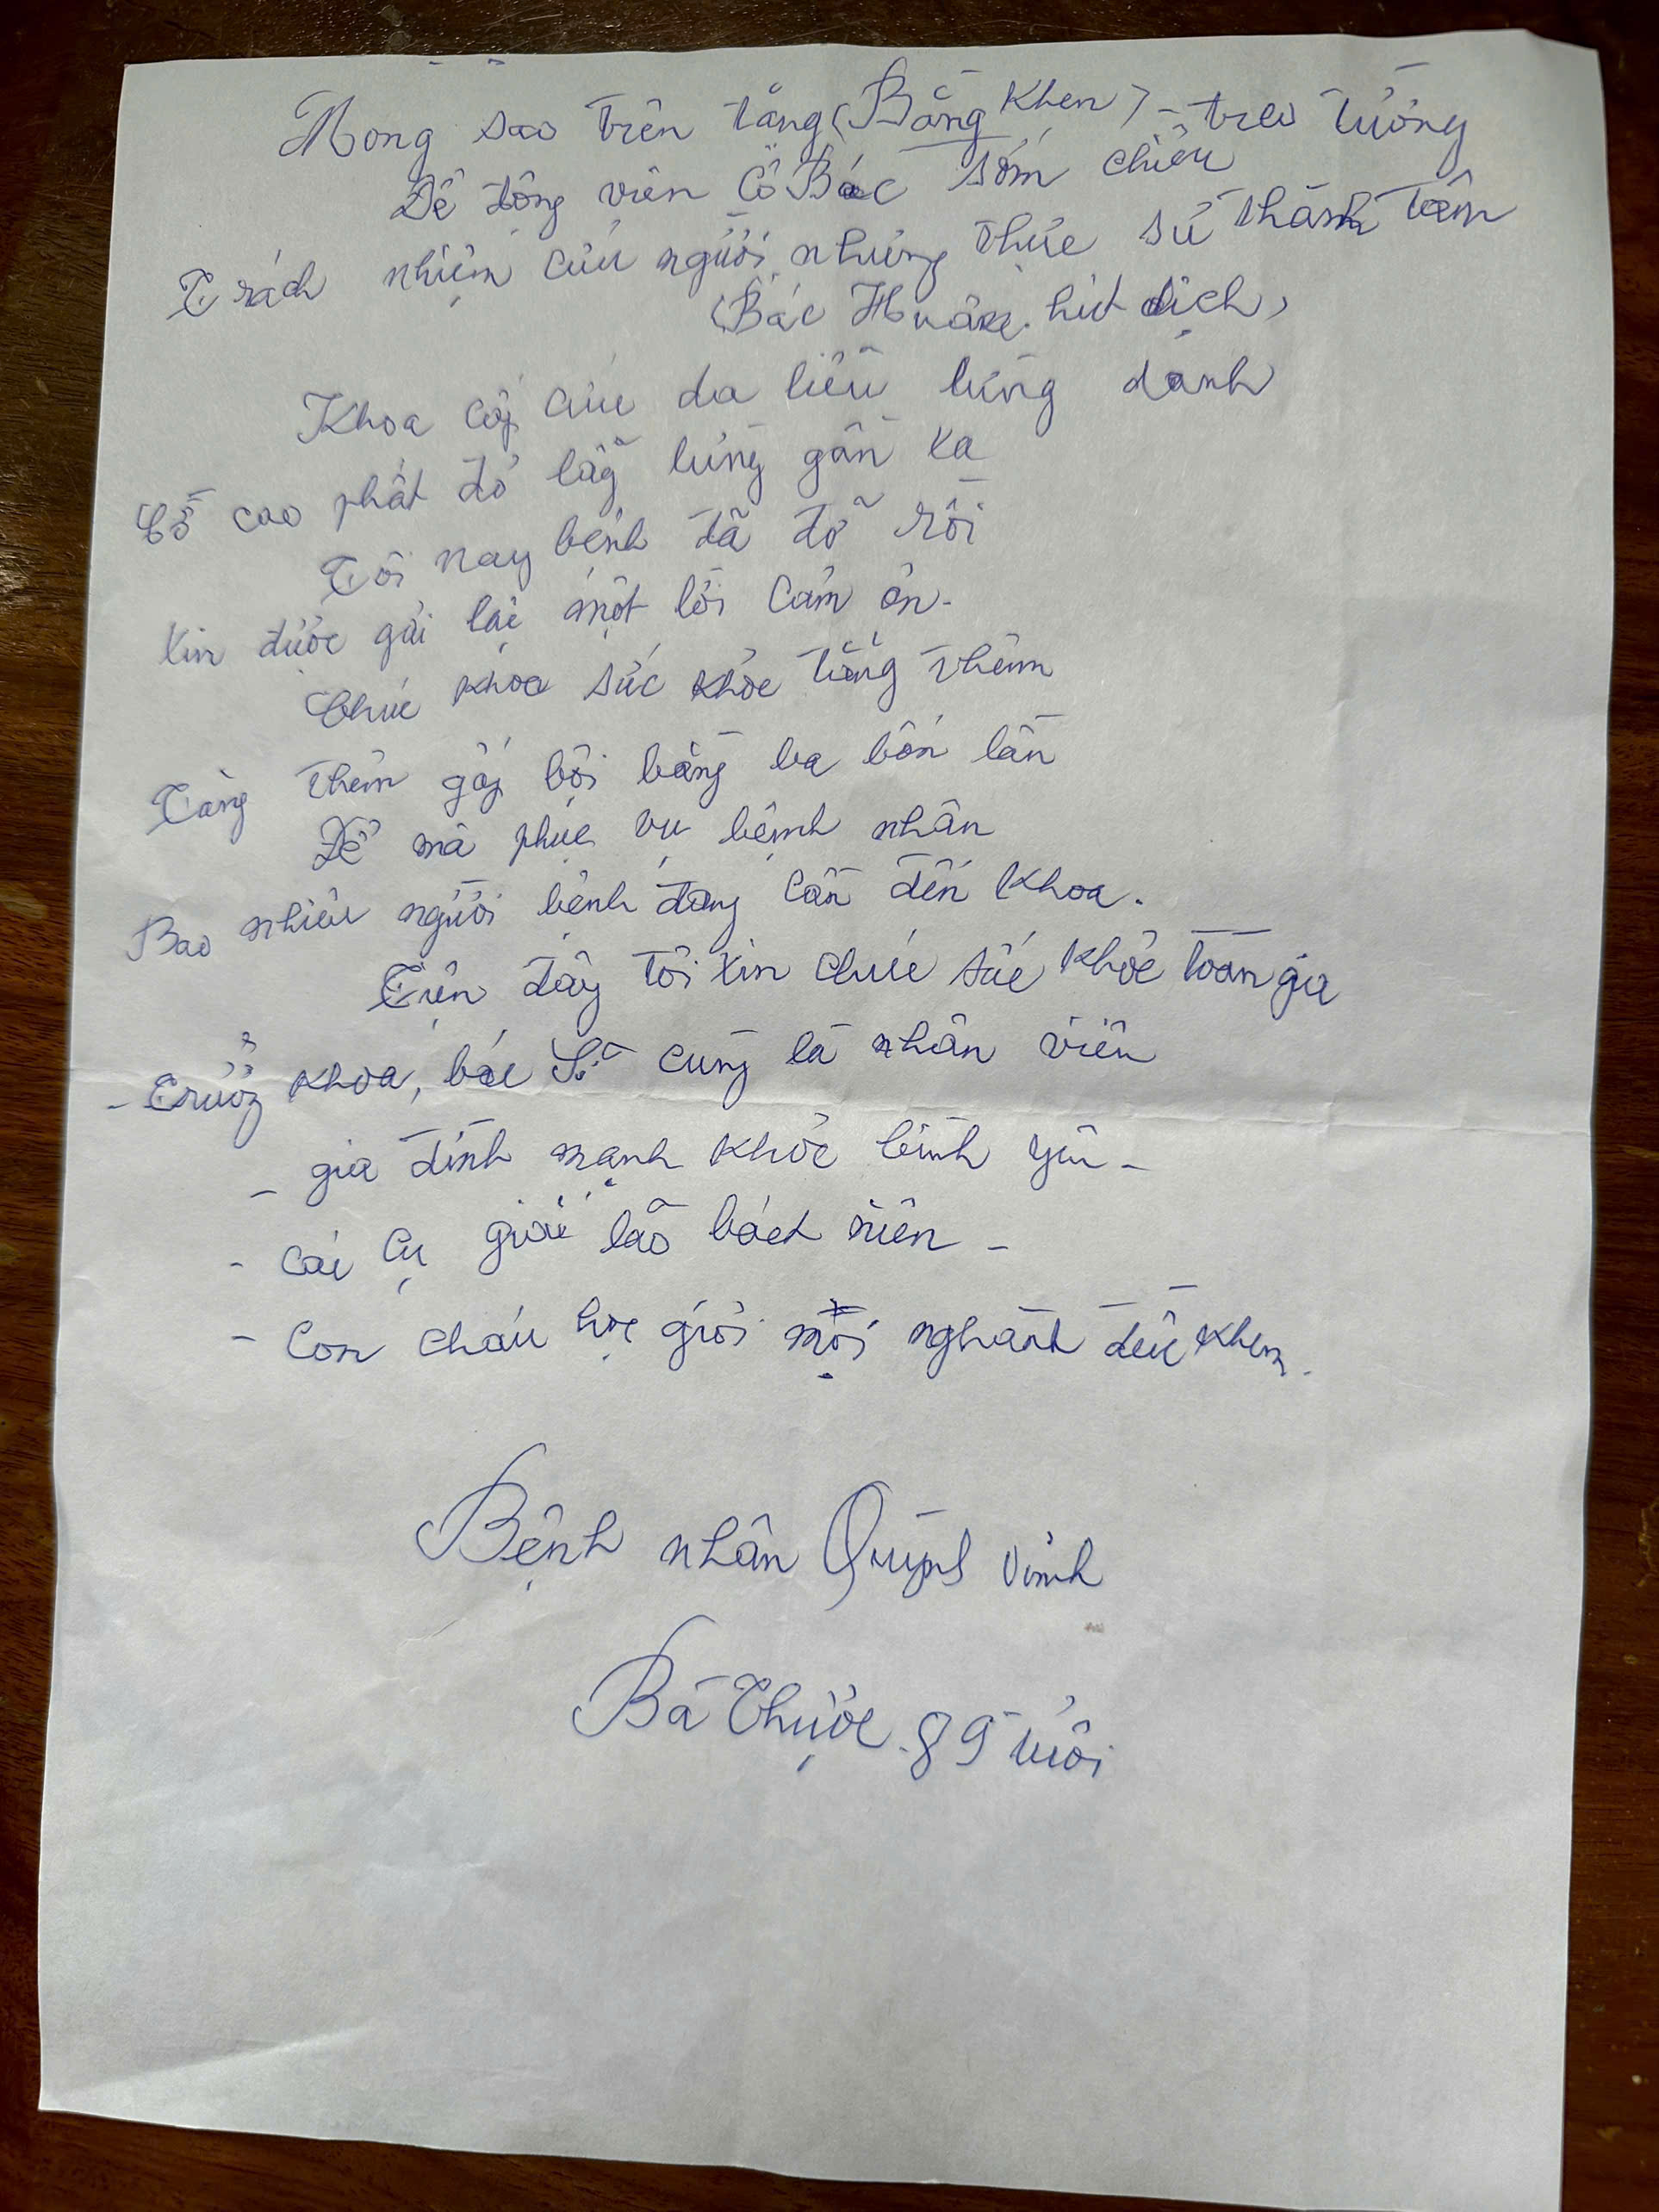 Mong sao trên tặng (Bằng khen) - treo tường
Để động viên cổ Bác sớm chiều
Trách nhiệm cứu người nhưng thực sự thành tâm
(Bác Huân hút dịch)
Khoa cấp cứu da liễu lừng danh
Cổ cao phất đỏ lẫy lừng gần xa
Tôi nay bệnh đã đỡ rồi
Xin được gửi lại một lời cám ơn.
Chúc khoa sức khỏe tăng thêm
Tăng thêm gấp bội bằng ba bốn lần
Để mà phục vụ bệnh nhân
Bao nhiêu người bệnh đang cần đến khoa.
Tiện đây tôi xin chúc sức khỏe toàn gia
- Trưởng khoa, bác sĩ cùng là nhân viên
- gia đình mạnh khỏe bình yên -
- các cụ giai lão bách niên -
- Con cháu học giỏi mọi nghành đều khen.
Bệnh nhân Quỳnh Vinh
Bà Thược. 89 tuổi